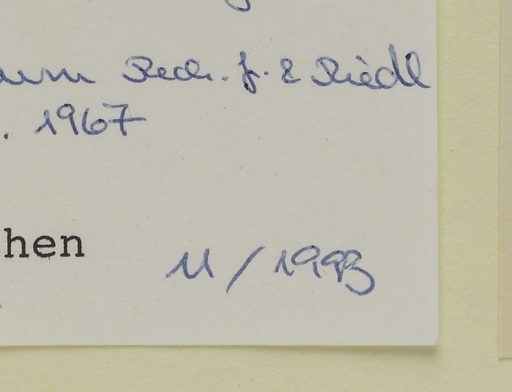 Rech. f. & Riedl
. 1967
hen
11 / 1993